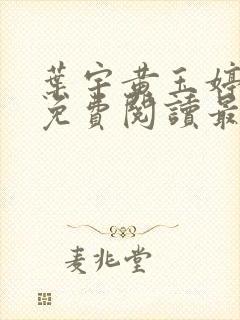 葉宇黃玉婷
免費閱讀最
麦兆堂